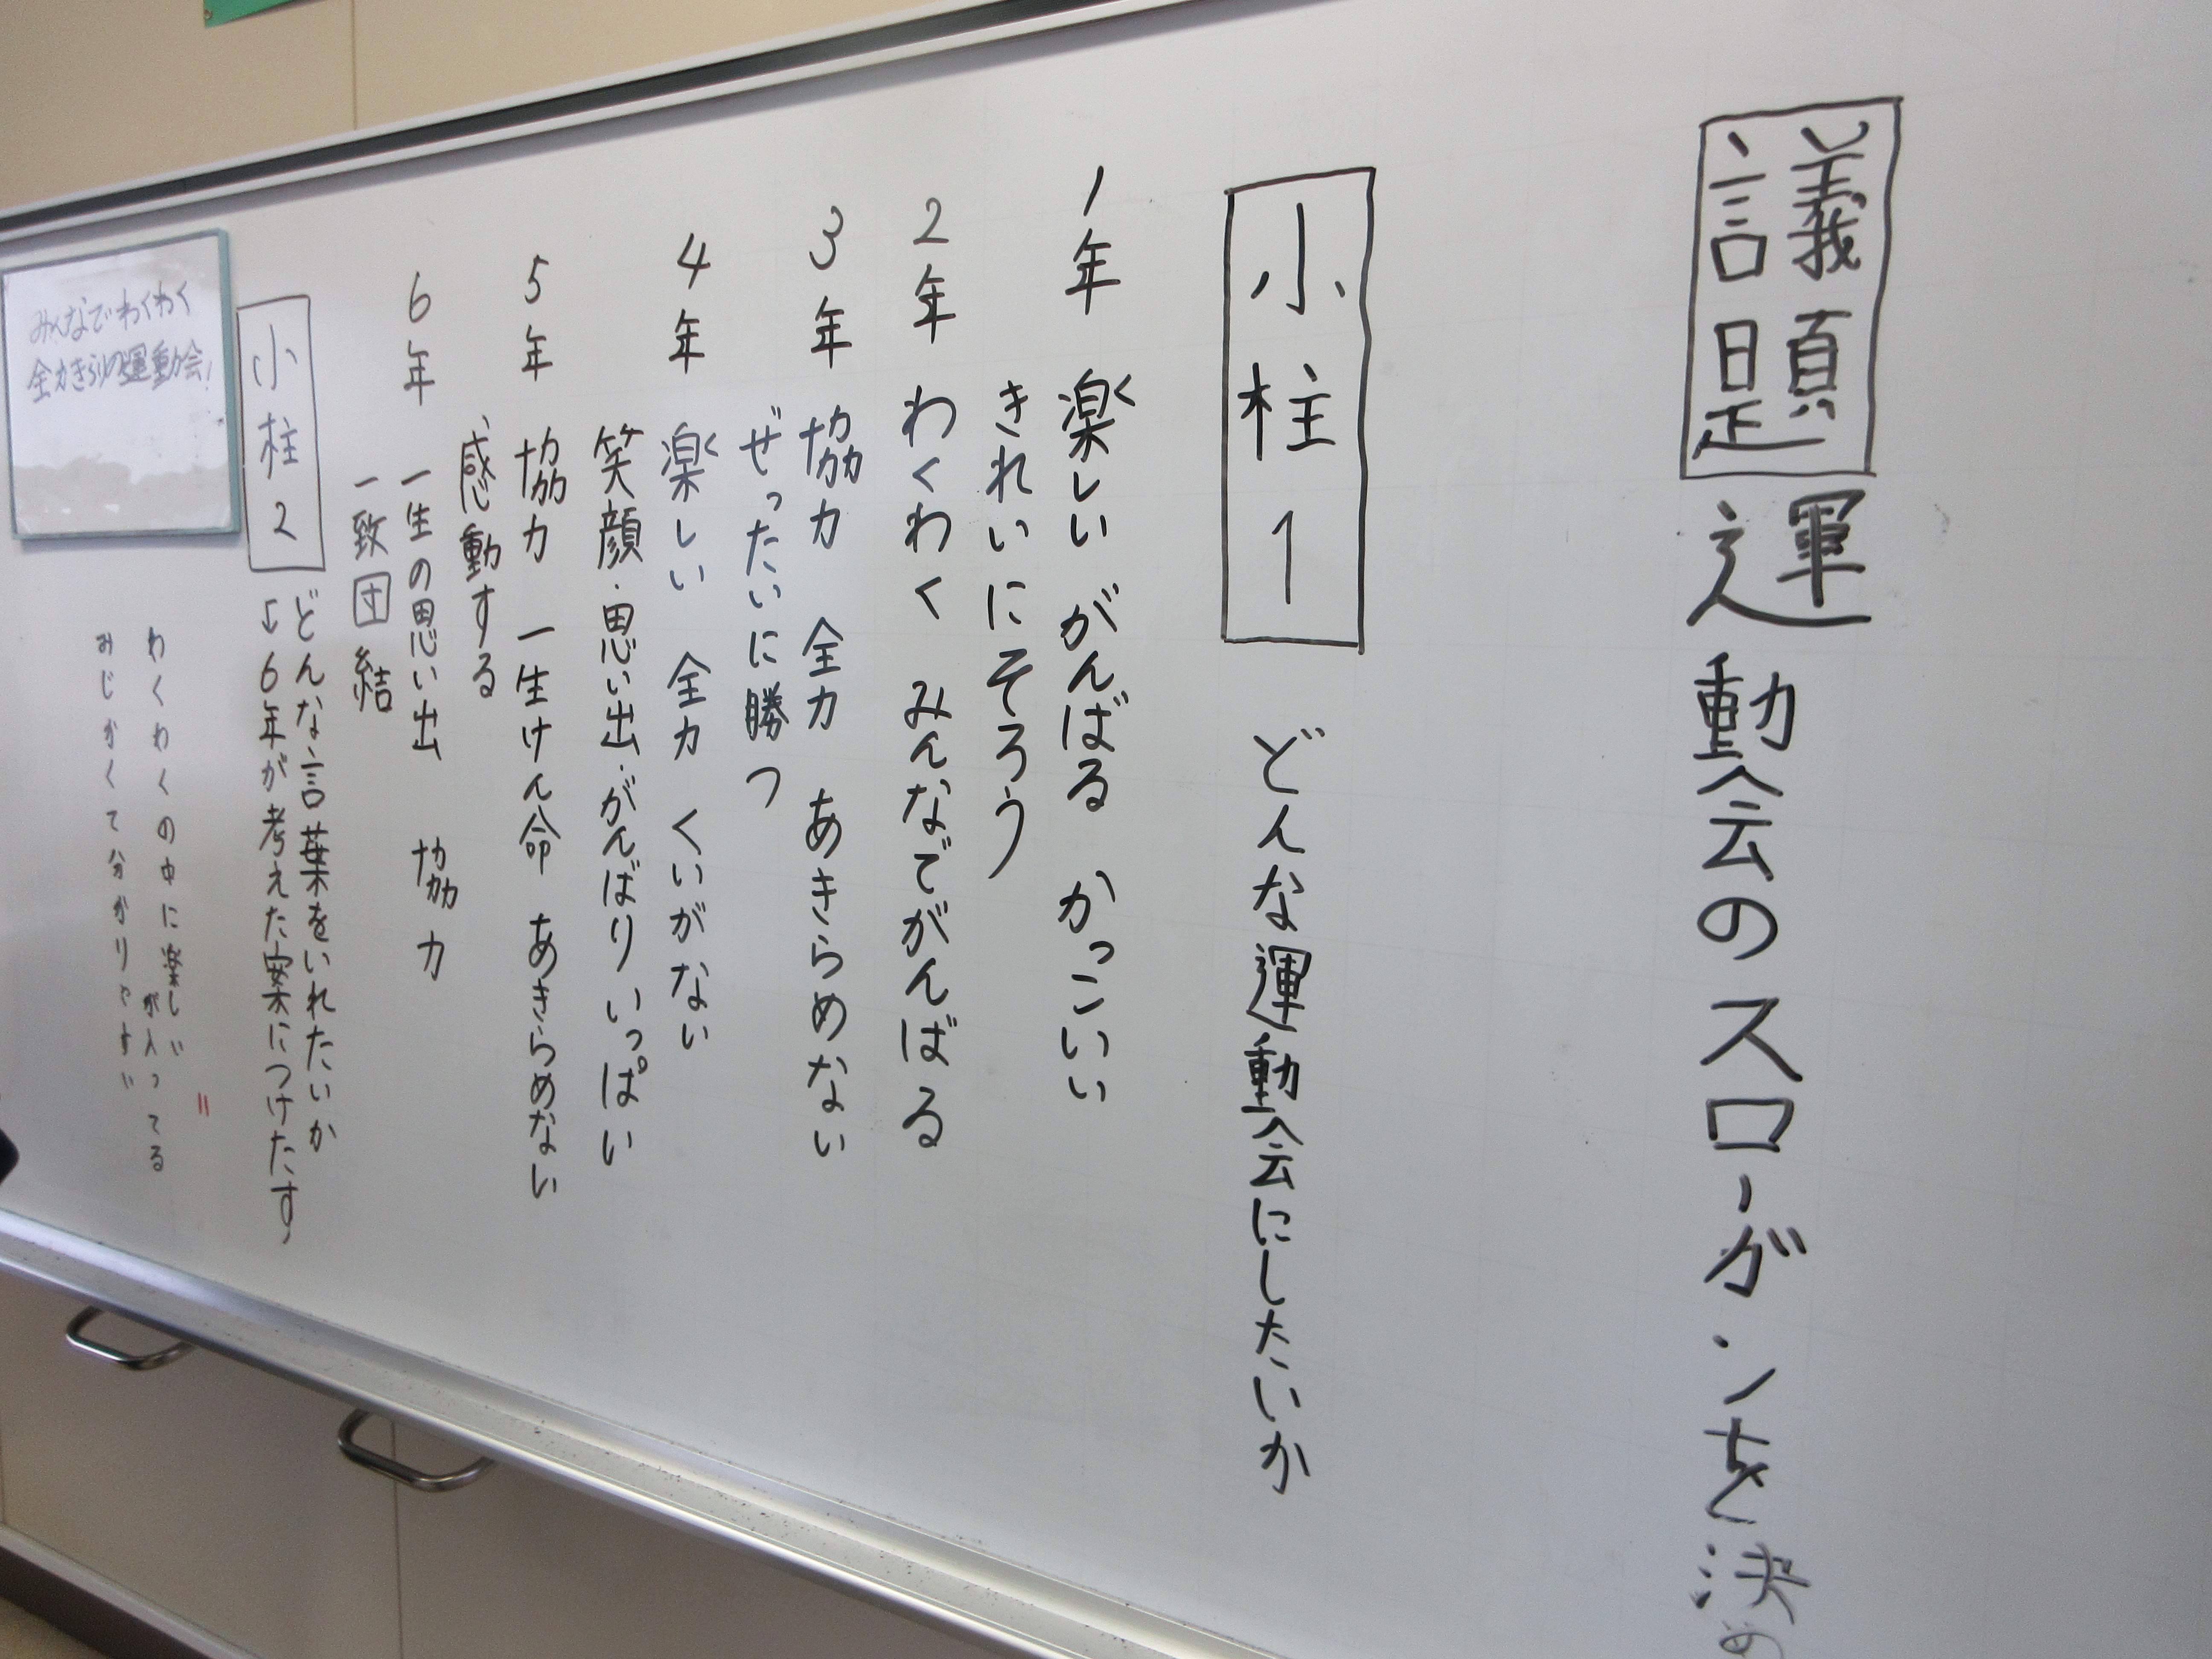 議題 運動会のスローガンを決め
小柱1 どんな運動会にしたいか
1年 楽しい がんばる かっこいい
きれいにそろう
2年 わくわく みんなでがんばる
3年 協力 全力 あきらめない
ぜったいに勝つ
4年 楽しい 全力 くいがない
笑顔・思い出・がんばりいっぱい
5年 協力 一生けん命 あきらめない
感動する
6年 一生の思い出 協力
一致団結
小柱2 どんな言葉をいれたいか
↓6年が考えた案につけたす
わくわくの中に楽しい
が入ってる
みじかくて分かりやすい
みんなでわくわく
全力きらりの運動会!